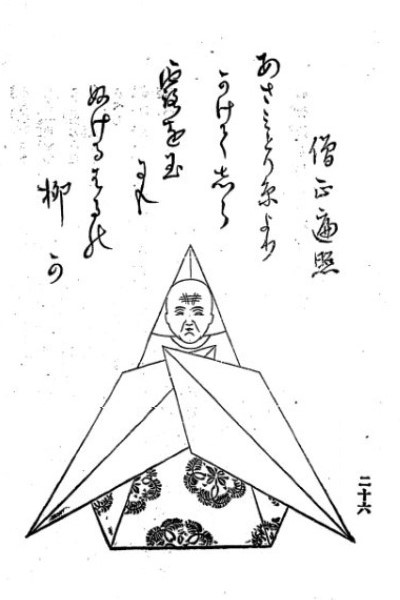 僧正遍照
あさミとり糸より
かけてしら
露を玉
にも
ぬけるはるの
柳か
二十六